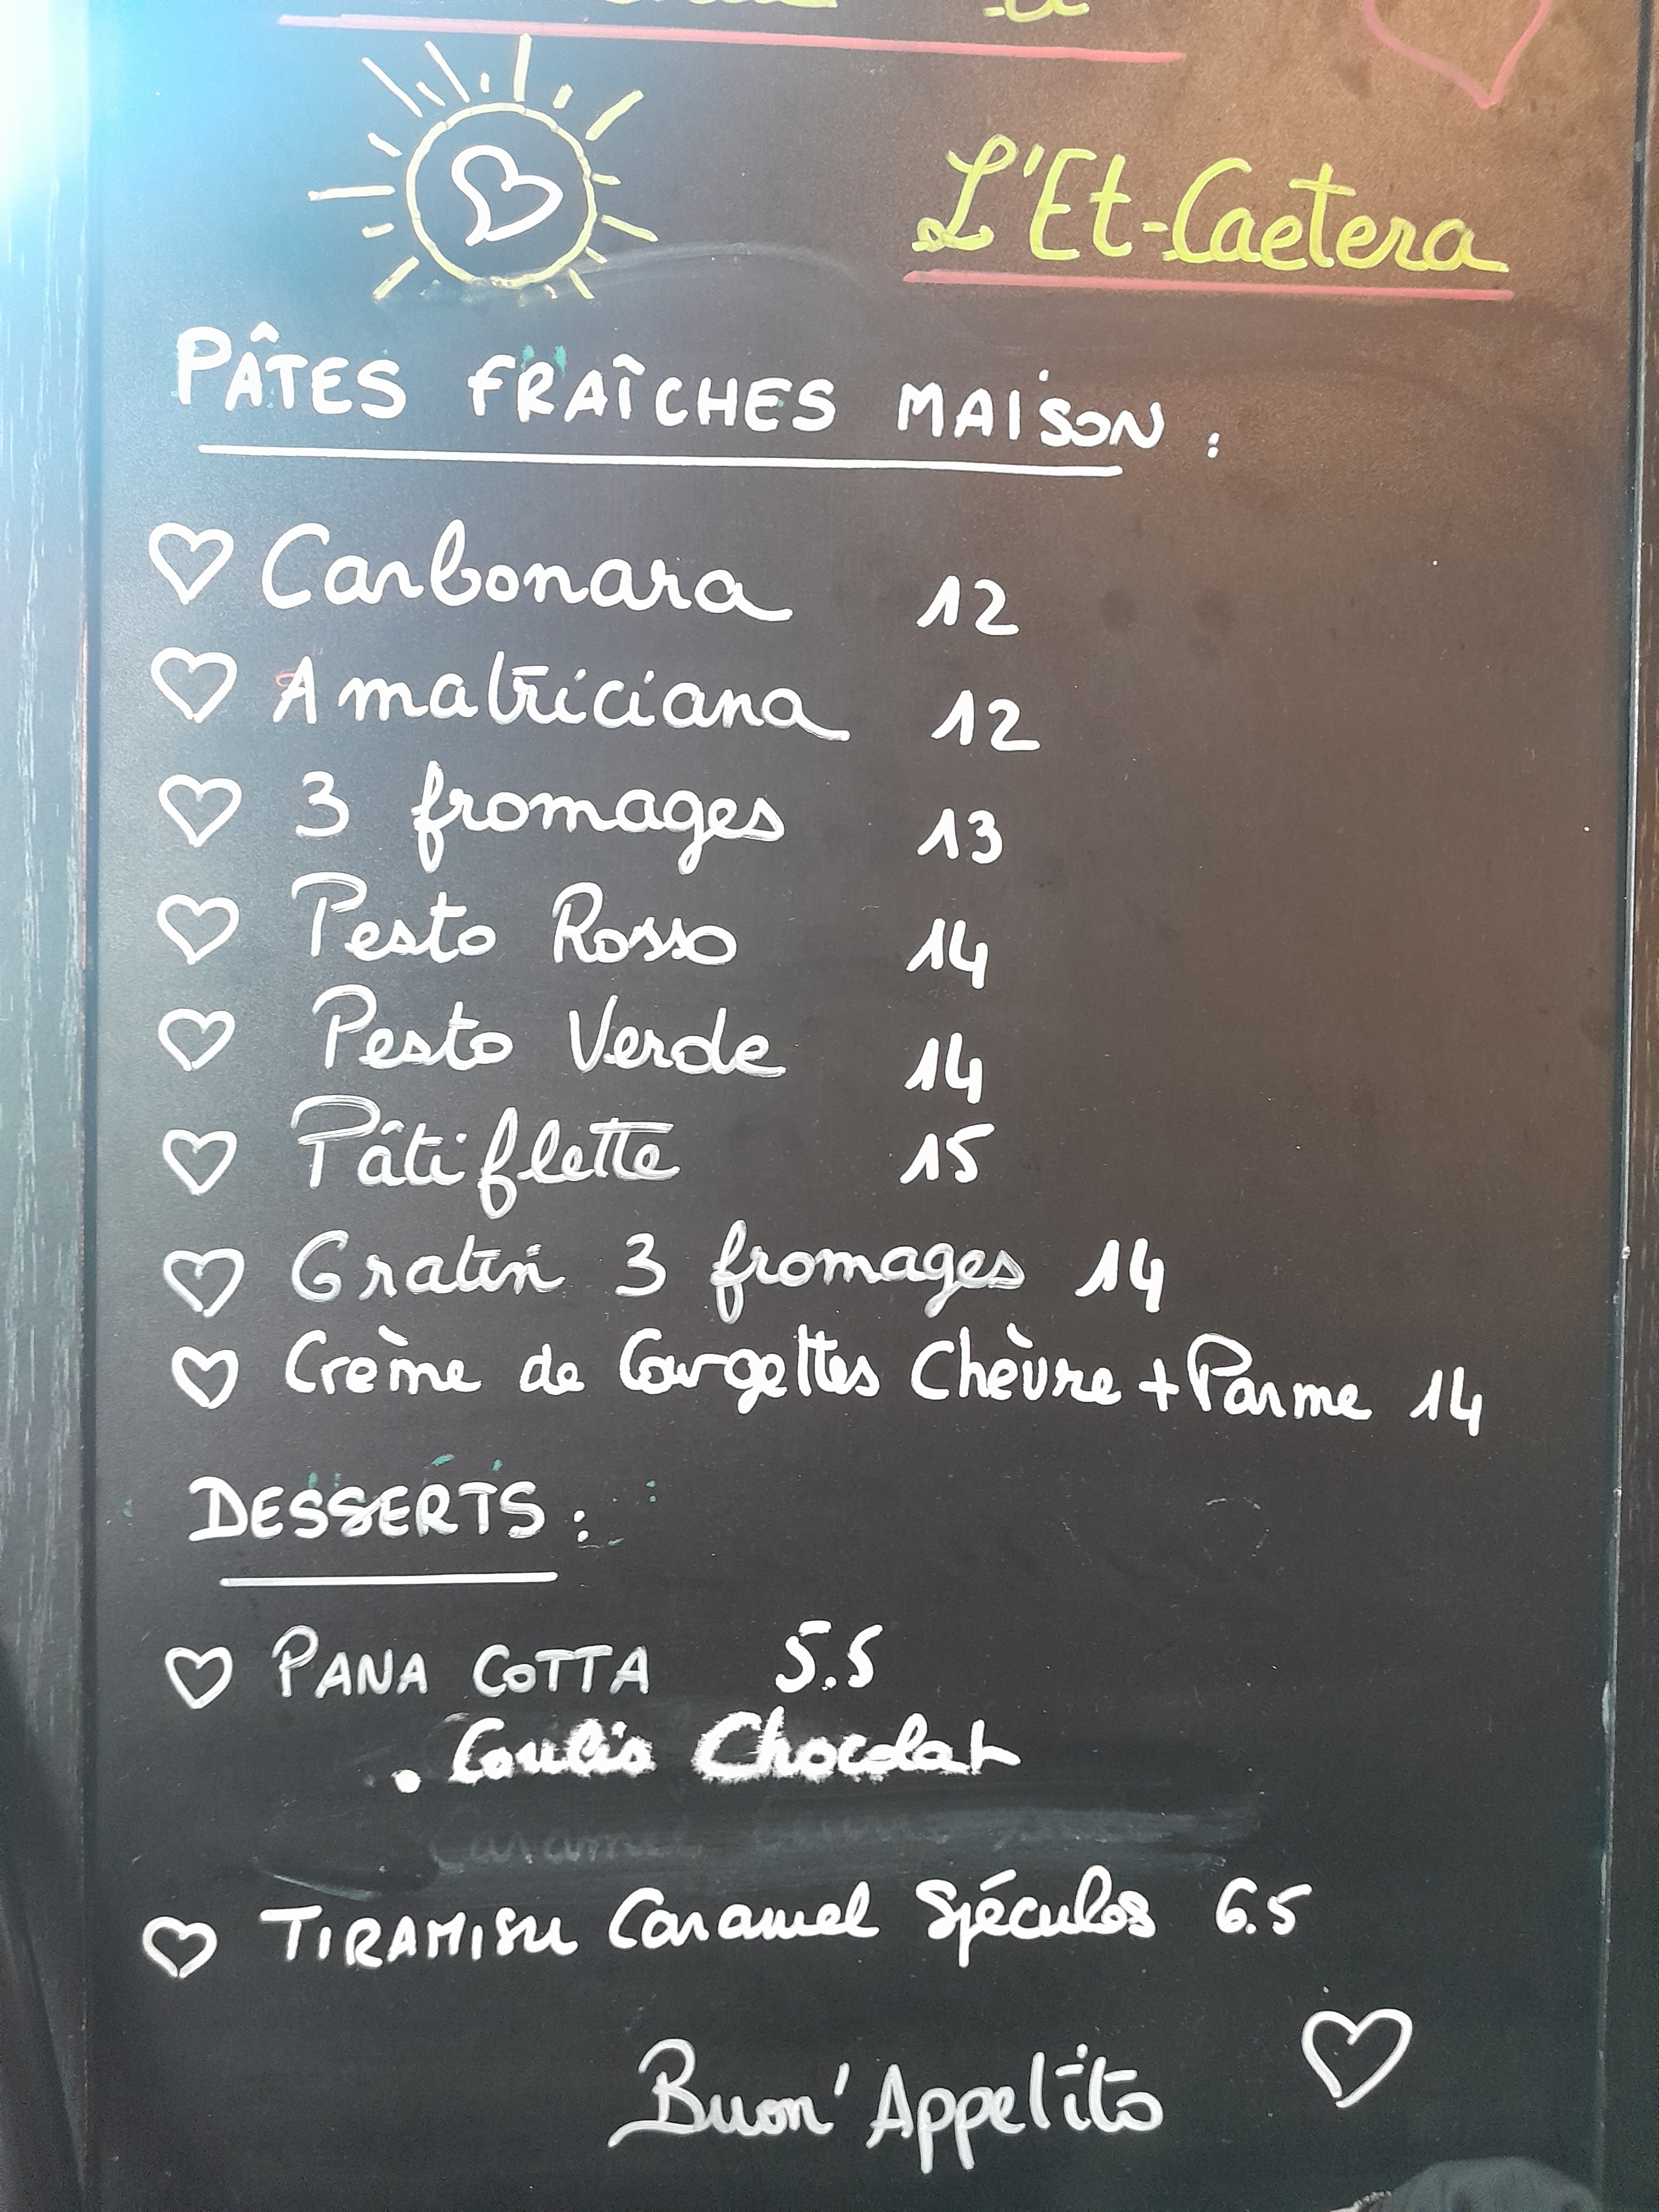 L'Et-Caetera
PÂTES FRAÎCHES MAISON :
Carbonara 12
Amatriciana 12
3 fromages 13
Pesto Rosso 14
Pesto Verde 14
Pâtiflette 15
Gratin 3 fromages 14
Crème de Courgettes Chèvre + Parme 14
DESSERTS :
PANA COTTA 5.5
. Coulis Chocolat
Caramel
TIRAMISU Caramel Spéculos 6.5
Buon' Appetito